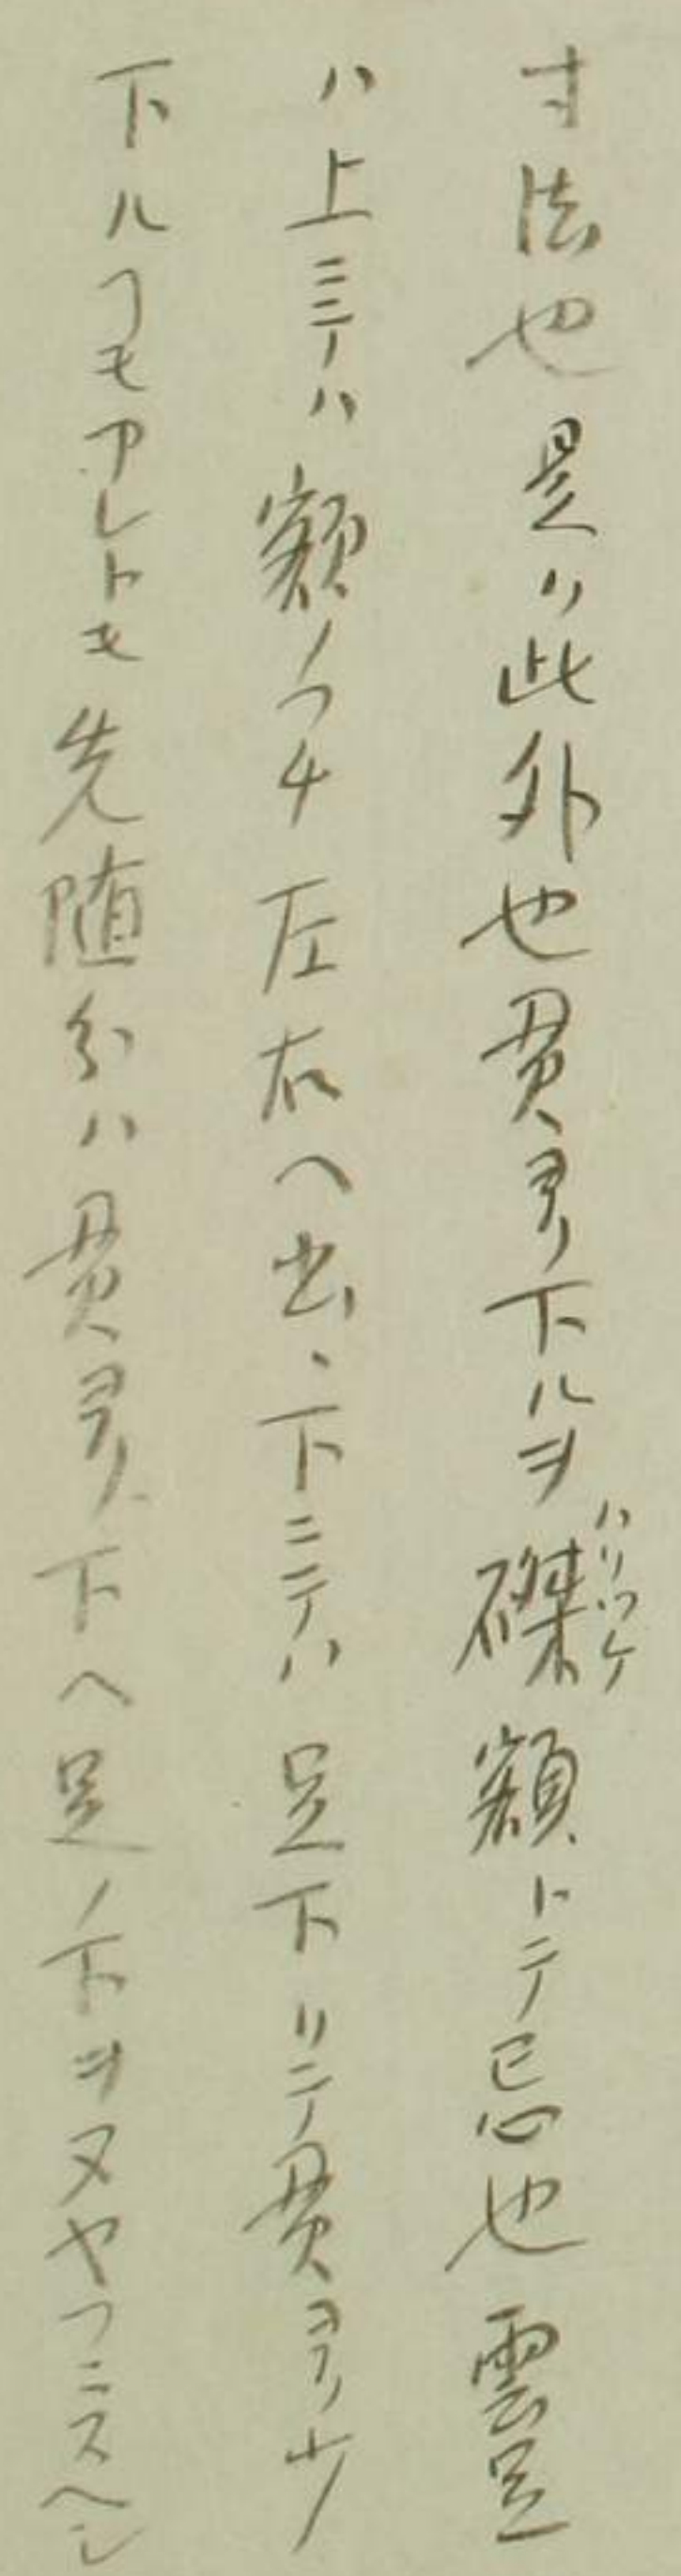 寸法也是ハ此外也貫ヨリ下ルヲ磔額トテ忌也雲足
ハリツケ
ハ上ニテハ額ノフチ左右ヘ出、下ニテハ足下リニテ貫ヨリ少
下ルヿモアレトモ先随分ハ貫ヨリ下ヘ足ノ下ヲヌヤフニスヘシ